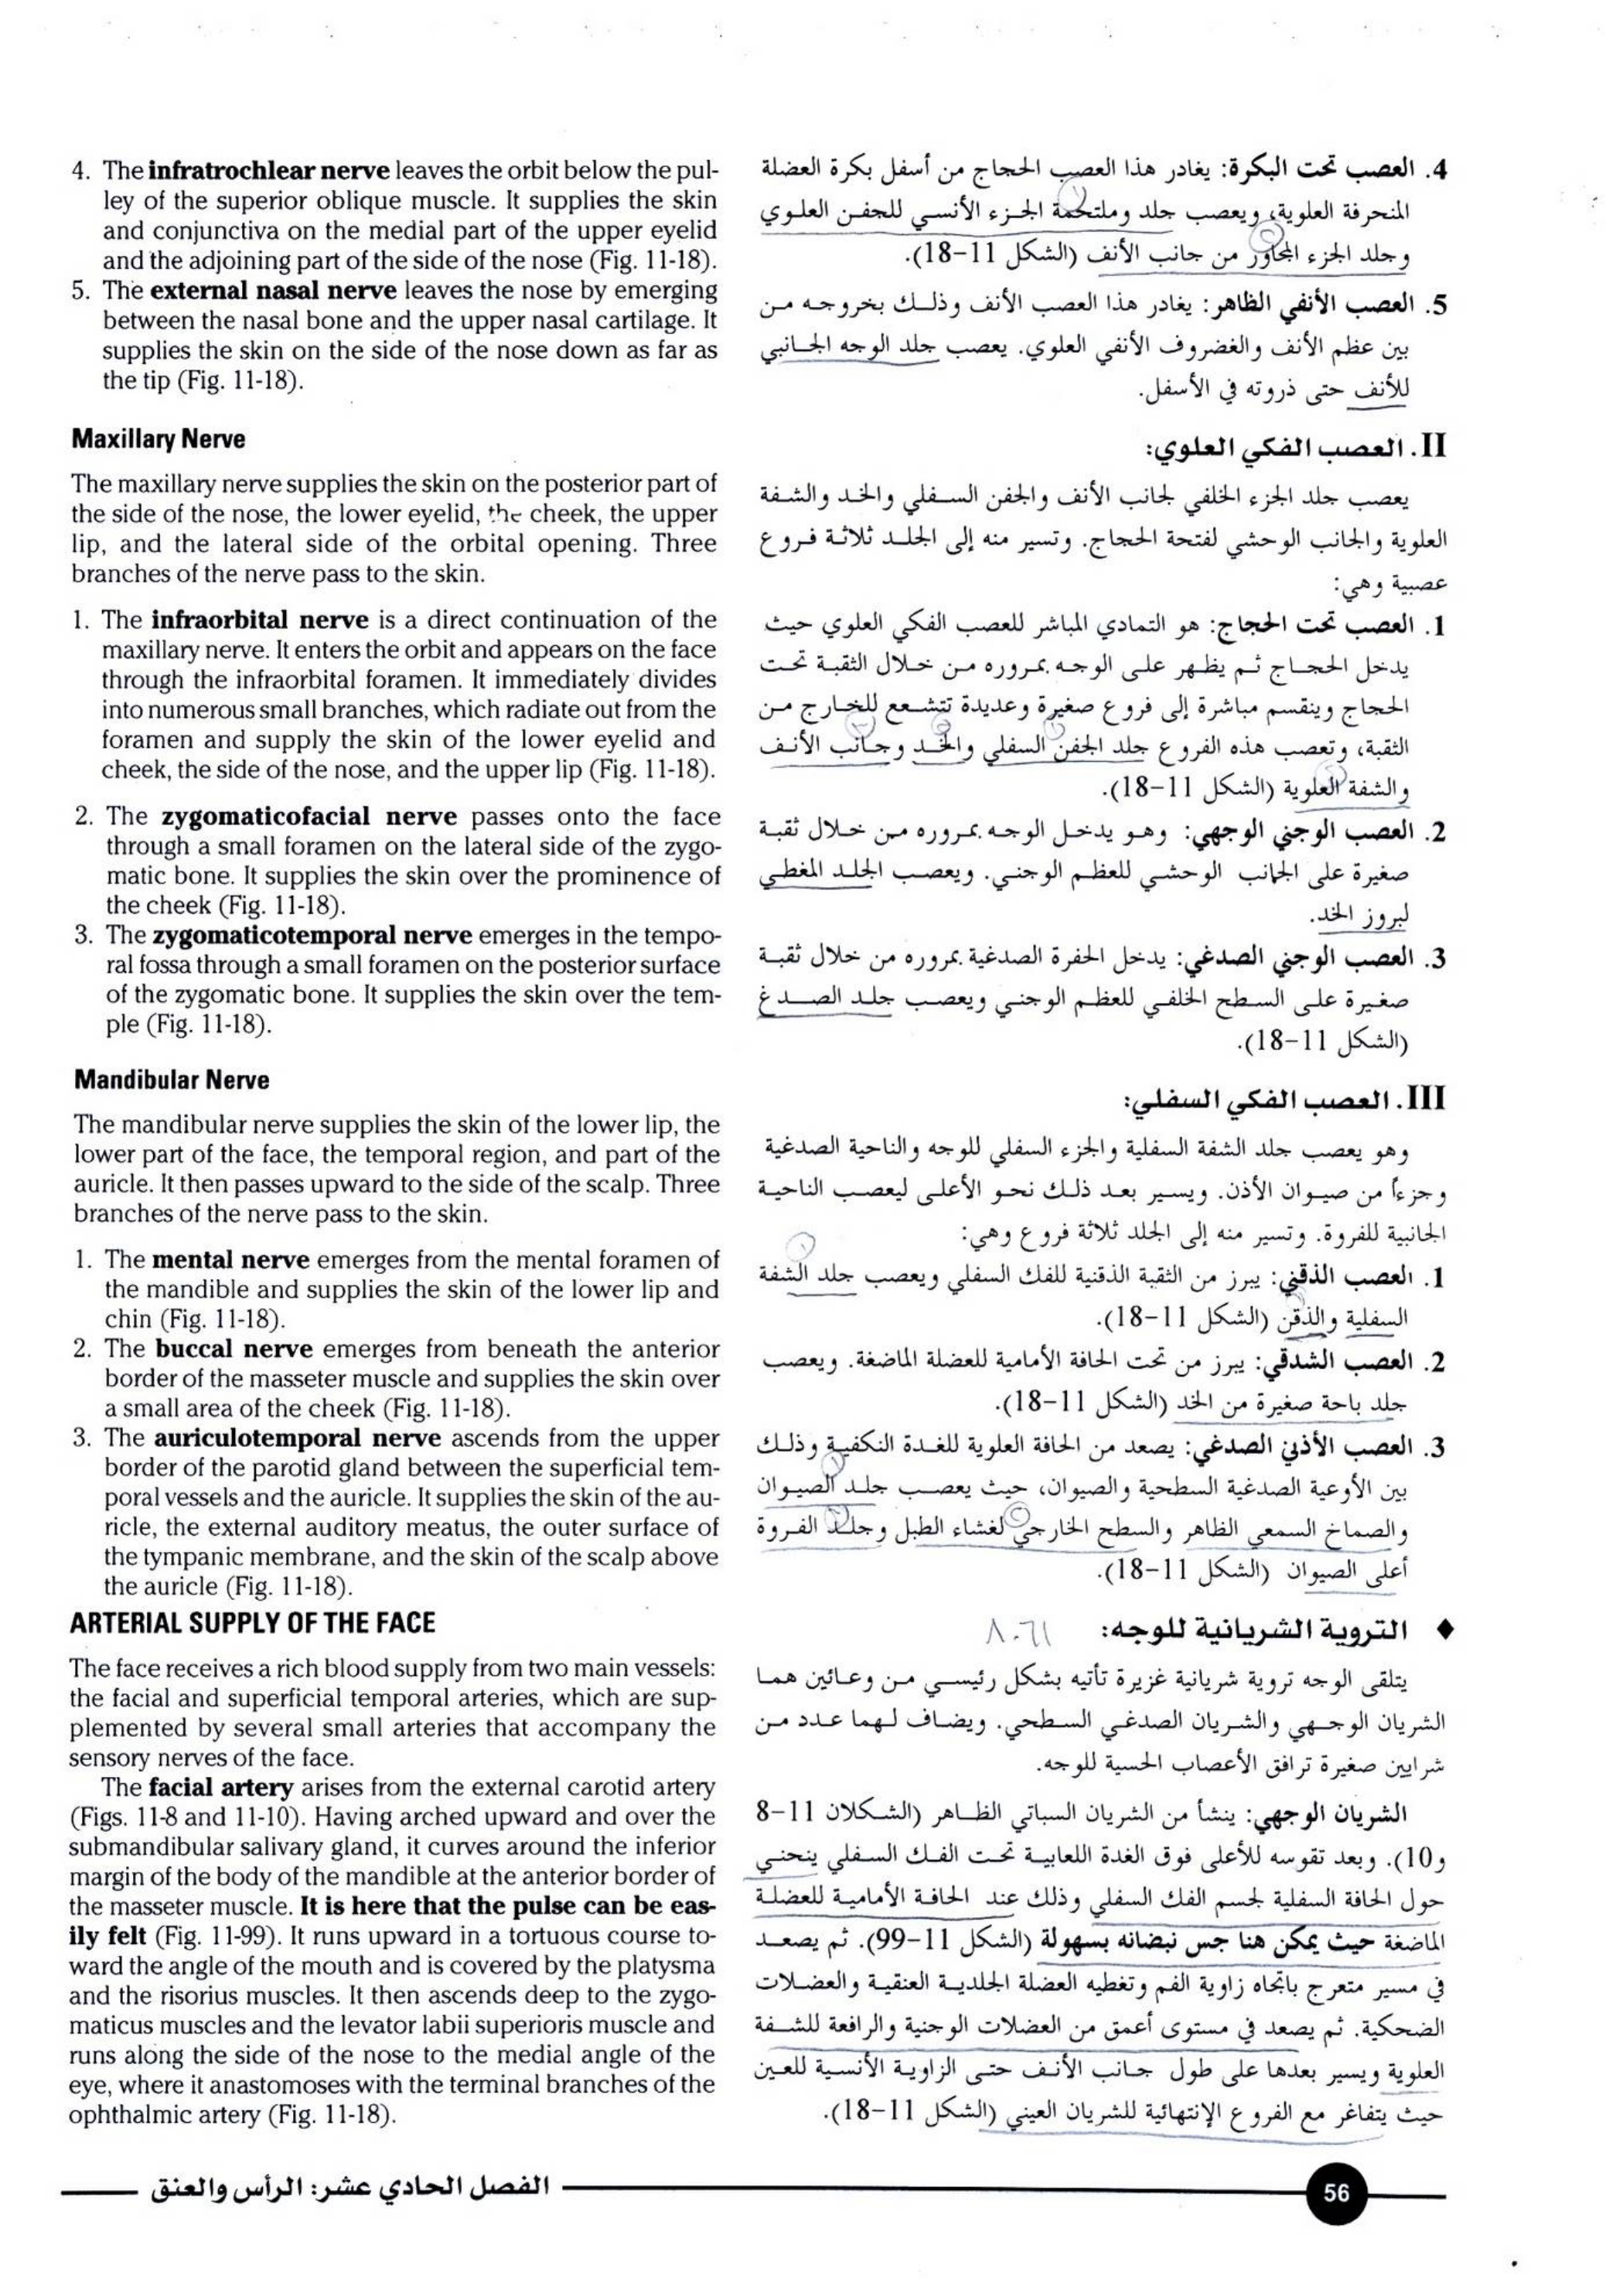 4. The infratrochlear nerve leaves the orbit below the pul-
ley of the superior oblique muscle. It supplies the skin
and conjunctiva on the medial part of the upper eyelid
and the adjoining part of the side of the nose (Fig. 11-18).
5. The external nasal nerve leaves the nose by emerging
between the nasal bone and the upper nasal cartilage. It
supplies the skin on the side of the nose down as far as
the tip (Fig. 11-18).
Maxillary Nerve
The maxillary nerve supplies the skin on the posterior part of
the side of the nose, the lower eyelid, the cheek, the upper
lip, and the lateral side of the orbital opening. Three
branches of the nerve pass to the skin.
1. The infraorbital nerve is a direct continuation of the
maxillary nerve. It enters the orbit and appears on the face
through the infraorbital foramen. It immediately divides
into numerous small branches, which radiate out from the
foramen and supply the skin of the lower eyelid and
cheek, the side of the nose, and the upper lip (Fig. 11-18).
2. The zygomaticofacial nerve passes onto the face
through a small foramen on the lateral side of the zygo-
matic bone. It supplies the skin over the prominence of
the cheek (Fig. 11-18).
3. The zygomaticotemporal nerve emerges in the tempo-
ral fossa through a small foramen on the posterior surface
of the zygomatic bone. It supplies the skin over the tem-
ple (Fig. 11-18).
Mandibular Nerve
The mandibular nerve supplies the skin of the lower lip, the
lower part of the face, the temporal region, and part of the
auricle. It then passes upward to the side of the scalp. Three
branches of the nerve pass to the skin.
1. The mental nerve emerges from the mental foramen of
the mandible and supplies the skin of the lower lip and
chin (Fig. 11-18).
2. The buccal nerve emerges from beneath the anterior
border of the masseter muscle and supplies the skin over
a small area of the cheek (Fig. 11-18).
3. The auriculotemporal nerve ascends from the upper
border of the parotid gland between the superficial tem-
poral vessels and the auricle. It supplies the skin of the au-
ricle, the external auditory meatus, the outer surface of
the tympanic membrane, and the skin of the scalp above
the auricle (Fig. 11-18).
ARTERIAL SUPPLY OF THE FACE
The face receives a rich blood supply from two main vessels:
the facial and superficial temporal arteries, which are sup-
plemented by several small arteries that accompany the
sensory nerves of the face.
The facial artery arises from the external carotid artery
(Figs. 11-8 and 11-10). Having arched upward and over the
submandibular salivary gland, it curves around the inferior
margin of the body of the mandible at the anterior border of
the masseter muscle. It is here that the pulse can be eas-
ily felt (Fig. 11-99). It runs upward in a tortuous course to-
ward the angle of the mouth and is covered by the platysma
and the risorius muscles. It then ascends deep to the zygo-
maticus muscles and the levator labii superioris muscle and
runs along the side of the nose to the medial angle of the
eye, where it anastomoses with the terminal branches of the
ophthalmic artery (Fig. 11-18).
4. العصب تحت البكرة: يغادر هذا العصب الحجاج من أسفل بكرة العضلة
المنحرفة العلوية، ويعصب جلد وملتحمة الجزء الأنسي للجفن العلوي
وجلد الجزء المجاور من جانب الأنف (الشكل 11-18).
5. العصب الأنفي الظاهر: يغادر هذا العصب الأنف وذلك بخروجه من
بين عظم الأنف والغضروف الأنفي العلوي. يعصب جلد الوجه الجانبي
للأنف حتى ذروته في الأسفل.
II. العصب الفكي العلوي:
يعصب جلد الجزء الخلفي لجانب الأنف والجفن السفلي والخد والشفة
العلوية والجانب الوحشي لفتحة الحجاج. وتسير منه إلى الجلد ثلاثة فروع
عصبية وهي:
1. العصب تحت الحجاج: هو التمادي المباشر للعصب الفكي العلوي حيث
يدخل الحجاج ثم يظهر على الوجه بمروره من خلال الثقبة تحت
الحجاج وينقسم مباشرة إلى فروع صغيرة وعديدة تتشعع للخارج من
الثقبة، وتعصب هذه الفروع جلد الجفن السفلي والخد وجانب الأنف
والشفة العلوية (الشكل 11-18).
2. العصب الوجني الوجهي: وهو يدخل الوجه بمروره من خلال ثقبة
صغيرة على الجانب الوحشي للعظم الوجني. ويعصب الجلد المغطي
لبروز الخد.
3. العصب الوجني الصدغي: يدخل الحفرة الصدغية بمروره من خلال ثقبة
صغيرة على السطح الخلفي للعظم الوجني ويعصب جلد الصدغ
(الشكل 11-18).
III. العصب الفكي السفلي:
وهو يعصب جلد الشفة السفلية والجزء السفلي للوجه والناحية الصدغية
وجزءاً من صيوان الأذن. ويسير بعد ذلك نحو الأعلى ليعصب الناحية
الجانبية للفروة. وتسير منه إلى الجلد ثلاثة فروع وهي:
1. العصب الذقني: يبرز من الثقبة الذقنية للفك السفلي ويعصب جلد الشفة
السفلية والذقن (الشكل 11-18).
2. العصب الشدقي: يبرز من تحت الحافة الأمامية للعضلة الماضغة. ويعصب
جلد باحة صغيرة من الخد (الشكل 11-18).
3. العصب الأذني الصدغي: يصعد من الحافة العلوية للغدة النكفية وذلك
بين الأوعية الصدغية السطحية والصيوان، حيث يعصب جلد الصيوان
والصماخ السمعي الظاهر والسطح الخارجي لغشاء الطبل وجلد الفروة
أعلى الصيوان (الشكل 11-18).
♦ التروية الشريانية للوجه:
يتلقى الوجه تروية شريانية غزيرة تأتيه بشكل رئيسي من وعائين هما
الشريان الوجهي والشريان الصدغي السطحي. ويضاف لهما عدد من
شرايين صغيرة ترافق الأعصاب الحسية للوجه.
الشريان الوجهي: ينشأ من الشريان السباتي الظاهر (الشكلان 11-8
و10). وبعد تقوسه للأعلى فوق الغدة اللعابية تحت الفك السفلي ينحني
حول الحافة السفلية لجسم الفك السفلي وذلك عند الحافة الأمامية للعضلة
الماضغة حيث يمكن هنا جس نبضانه بسهولة (الشكل 11-99). ثم يصعد
في مسير متعرج باتجاه زاوية الفم وتغطيه العضلة الجلدية العنقية والعضلات
الضحكية. ثم يصعد في مستوى أعمق من العضلات الوجنية والرافعة للشفة
العلوية ويسير بعدها على طول جانب الأنف حتى الزاوية الأنسية للعين
حيث يتفاغر مع الفروع الإنتهائية للشريان العيني (الشكل 11-18).
الفصل الحادي عشر: الرأس والعنق
56